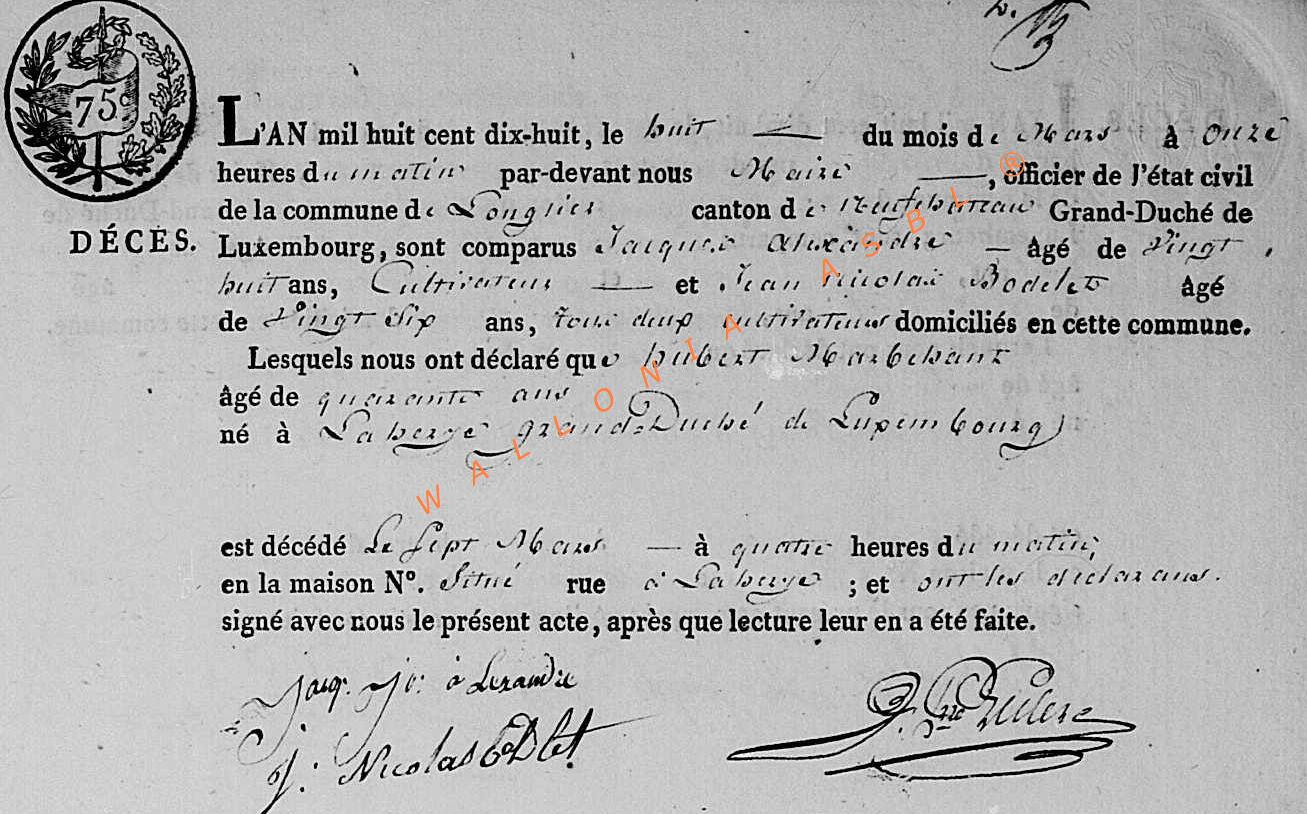 75c
L'AN mil huit cent dix-huit, le huit du mois de Mars à onze
heures du matin par-devant nous Maire, officier de l'état civil
de la commune de Longlier canton de Neufchateau Grand-Duché de
DÉCÈS. Luxembourg, sont comparus Jacques Alexandre âgé de vingt
huit ans, Cultivateur et Jean Nicolas Bodelet âgé
de vingt six ans, tous deux cultivateurs domiciliés en cette commune.
Lesquels nous ont déclaré que hubert Marbehant
âgé de quarante ans
né à Laherye grand-Duché de Luxembourg
est décédé Le sept Mars à quatre heures du matin,
en la maison N°. Situé rue à Laherye ; et ont les déclarans.
signé avec nous le présent acte, après que lecture leur en a été faite.
Jacq. Je: alexandre
J: Nicolas bodlet
WALLONIA ASBL ®